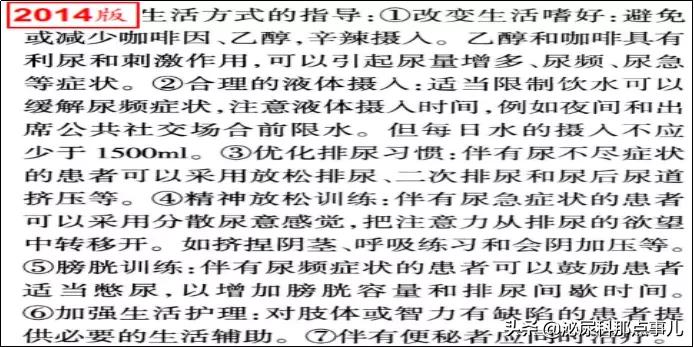 2014版 生活方式的指导:①改变生活嗜好:避免
或减少咖啡因、乙醇,辛辣摄入。乙醇和咖啡具有
利尿和刺激作用,可以引起尿量增多、尿频、尿急
等症状。②合理的液体摄入:适当限制饮水可以
缓解尿频症状,注意液体摄入时间,例如夜间和出
席公共社交场合前限水。但每日水的摄入不应
少于1500ml。③优化排尿习惯:伴有尿不尽症状
的患者可以采用放松排尿、二次排尿和尿后尿道
挤压等。④精神放松训练:伴有尿急症状的患者
可以采用分散尿意感觉,把注意力从排尿的欲望
中转移开。如挤捏阴茎、呼吸练习和会阴加压等。
⑤膀胱训练:伴有尿频症状的患者可以鼓励患者
适当憋尿,以增加膀胱容量和排尿间歇时间。
⑥加强生活护理:对肢体或智力有缺陷的患者提
供必要的生活辅助。⑦伴有便秘者应同时治疗。
头条 @泌尿科那点事儿